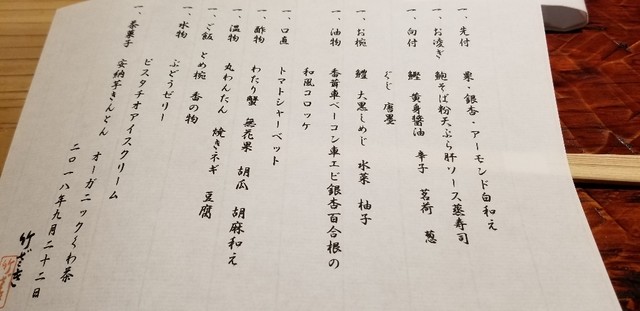 一、先付 栗・銀杏・アーモンド白和え
一、お凌ぎ 鮑そば粉天ぷら肝ソース蒸寿司
一、向付 鰹 黄身醤油 辛子 茗荷 葱
ぐじ 唐墨
一、お椀 鱧 大黒しめじ 水菜 柚子
一、油物 番茸車ベーコン車エビ銀杏百合根の
和風コロッケ
一、口直 トマトシャーベット
一、酢物 わたり蟹 無花果 胡瓜 胡麻和え
一、温物 丸わんたん 焼きネギ 豆腐
一、ご飯 とめ椀 香の物
一、水物 ぶどうゼリー
ピスタチオアイスクリーム
一、茶菓子 安納芋きんとん オーガニックくわ茶
二〇一八年九月二十二日
竹ざき